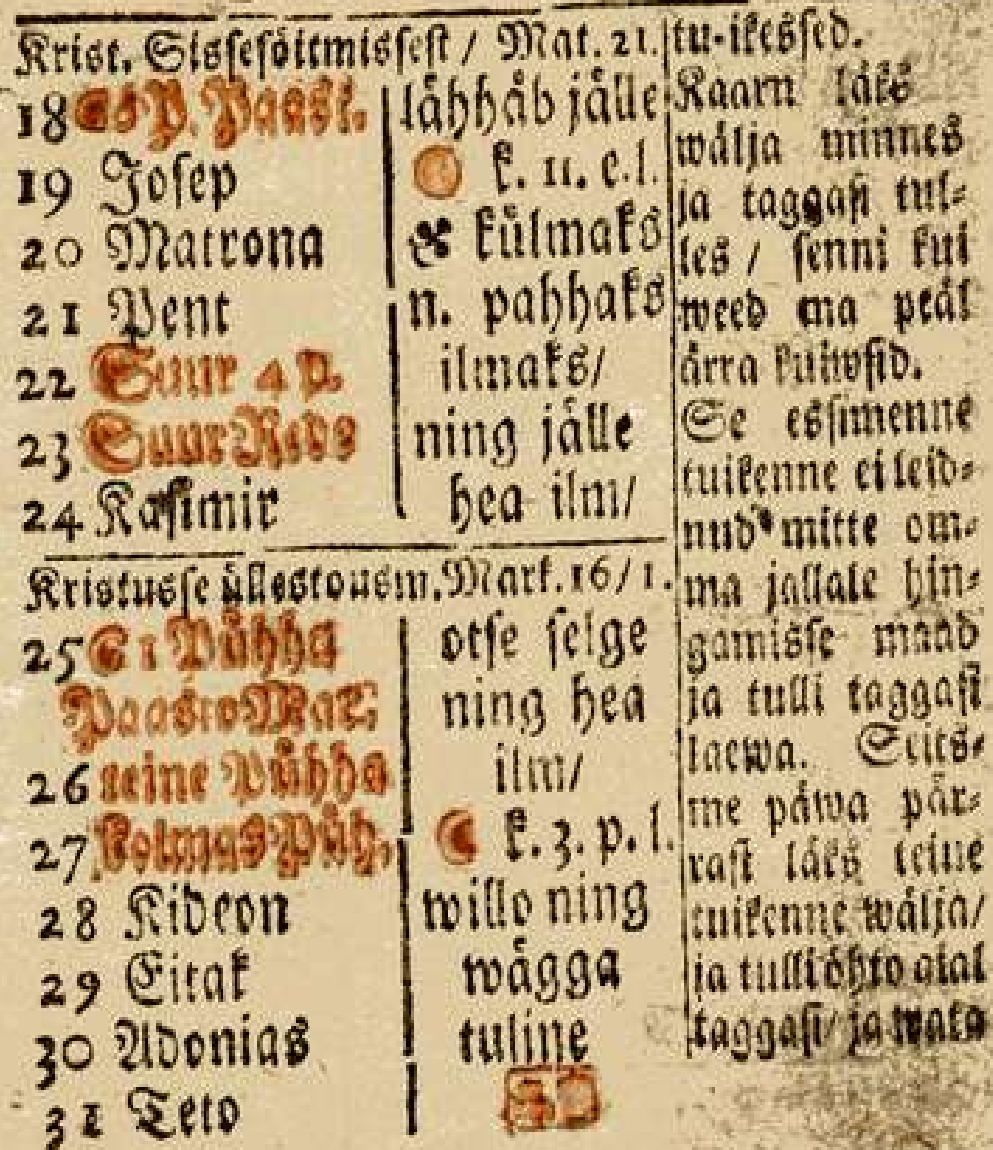 Krist. Sissesöitmissest / Mat. 21.
18 E6 P. Paast.
19 Josep
20 Matrona
21 Pent
22 Suur 4 P.
23 Suur Rede
24 Kasimir
lähhäb jälle
k. 11. e. l.
külmaks
n. pahhaks
ilmaks/
ning jälle
hea ilm/
Kristusse üllestousm. Mark. 16/1.
25 C 1 Pühha
Paasto Mar.
26 teine Pühha
27 kolmas Püh.
28 Kideon
29 Eitak
30 Adonias
31 Teto
otse selge
ning hea
ilm/
k. 3. p. l.
willo ning
wägga
tuline
tu-ikessed.
Kaarn läks
wälja minnes
ja taggasi tul-
les / senni kui
weed ma peäl
ärra kuiwsid.
Se essimenne
tuikenne ei leid-
nud mitte om-
ma jallale hin-
gamisse maad
ja tulli taggasi
laewa. Seits-
me päwa pär-
rast läks teine
tuikenne wälja/
ja tulli öhto aial
taggasi/ ja wata